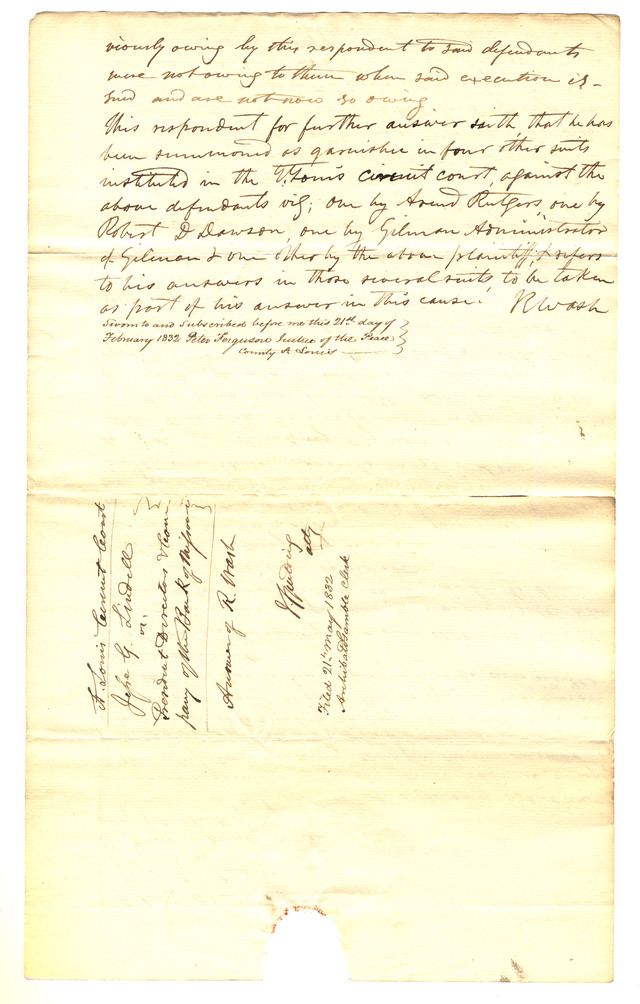 viously owing by this respondent to said defendants
were not owing to them when said execution is-
sued and are not now so owing
This respondent for further answer saith, that he has
been summoned as garnishee in four other suits
instituted in the St. Louis circuit court, against the
above defendants viz; one by Arend Rutgers one by
Robert D Dawson, one by Gilman Administrator
of Gilman & one other by the above plaintiff, & refers
to his answers in those several suits to be taken
as part of his answer in this cause. R Wash
Sworn to and subscribed before me this 21st day of
February 1832 Peter Ferguson Justice of the Peace
County St Louis
St. Louis Circuit Court
Jesse G. Lindell
vs.
President Directors & Com-
pany of the Bank of Missouri
Answer of R. Wash
Spalding
atty
Filed 21st May 1832
Archibald Gamble Clerk